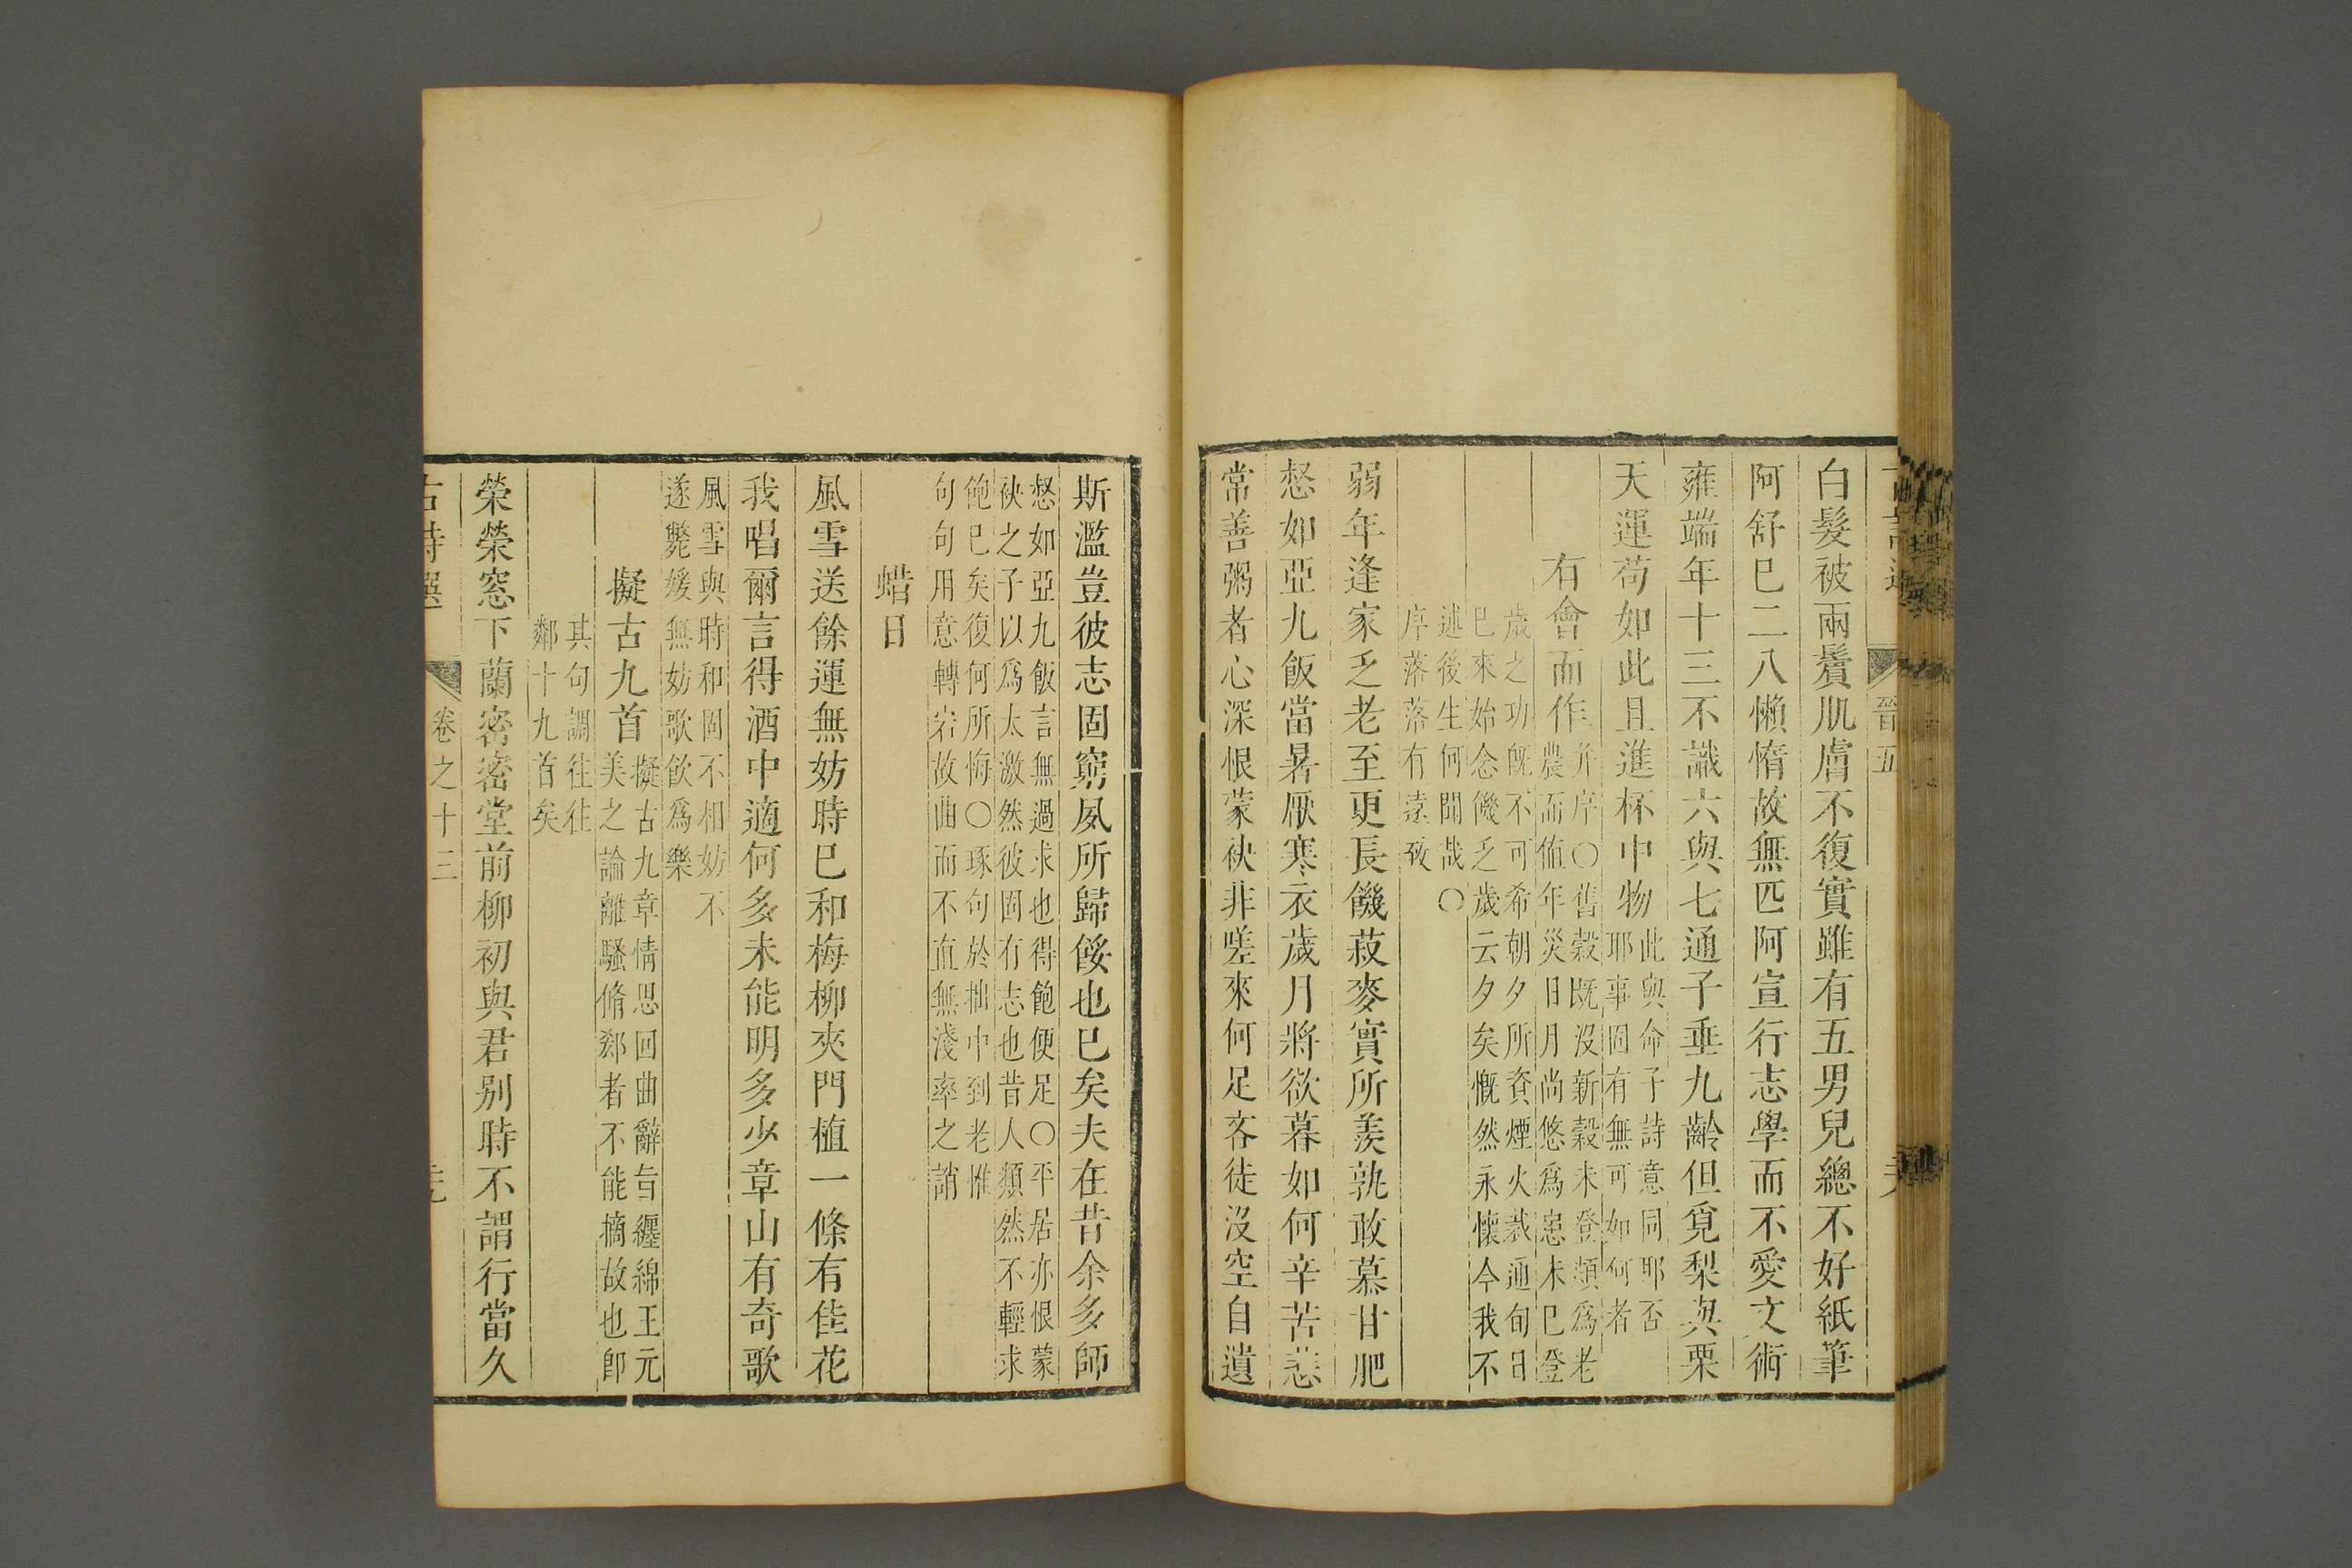 晉五
白髮被兩鬢肌膚不復實雖有五男兒總不好紙筆
阿舒巳二八懶惰故無匹阿宣行志學而不愛文術
雍端年十三不識六與七通子垂九齡但覓梨與栗
天運苟如此且進杯中物
此與命子詩意同耶否
耶事固有無可如何者
有會而作
并序○舊穀既沒新穀未登頗爲老
農而値年災日月尚悠爲患未巳登
歲之功既不可希朝夕所資煙火裁通旬日
巳來始念飢乏歲云夕矣慨然永懷今我不
述後生何聞哉○
序落落有遠致
弱年逢家乏老至更長饑菽麥實所羨孰敢慕甘肥
惄如亞九飯當暑厭寒衣歲月將欲暮如何辛苦悲
常善粥者心深恨蒙袂非嗟來何足吝徒沒空自遺
斯濫豈彼志固窮夙所歸餒也巳矣夫在昔余多師
惄如亞九飯言無過求也得飽便足○平居亦恨蒙
袂之子以爲太激然彼固有志也昔人類然不輕求
飽巳矣復何所悔○琢句於拙中到老惟
句句用意轉宕故曲而不直無淺率之誚
蜡日
風雪送餘運無妨時巳和梅柳夾門植一條有佳花
我唱爾言得酒中適何多未能明多少章山有奇歌
風雪與時和固不相妨不
遂斃媛無妨歌飲爲樂
擬古九首
擬古九章情思回曲辭旨纏綿王元
美之論離騷脩郄者不能摘故也卽
其句調往往
鄰十九首矣
榮榮窓下蘭密密堂前柳初與君别時不謂行當久
古詩選 卷之十三